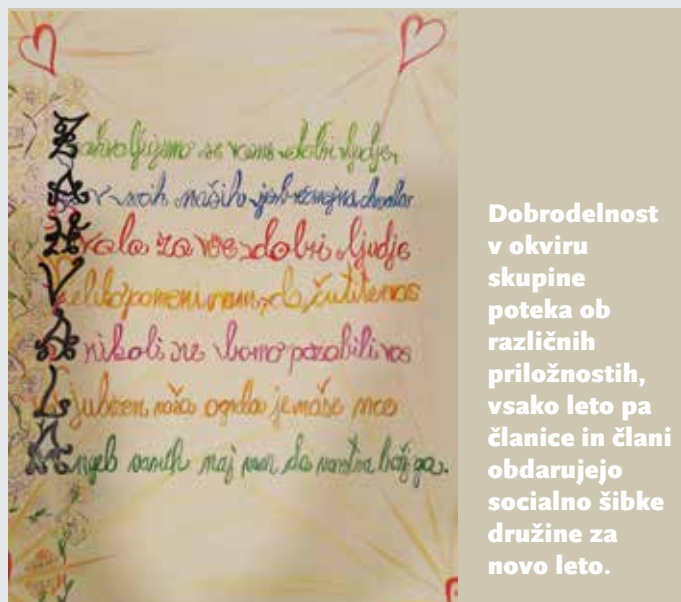 Zahvaljujemo se vam dobri ljudje,
A v srcih naših je
Hvala za vse, dobri ljudje
Veliko pomeni nam, da čutite nas
A nikoli ne bomo pozabili vas
Ljubezen naša je naše srce
varuh naj vam da
Dobrodelnost
v okviru
skupine
poteka ob
različnih
priložnostih,
vsako leto pa
članice in člani
obdarujejo
socialno šibke
družine za
novo leto.